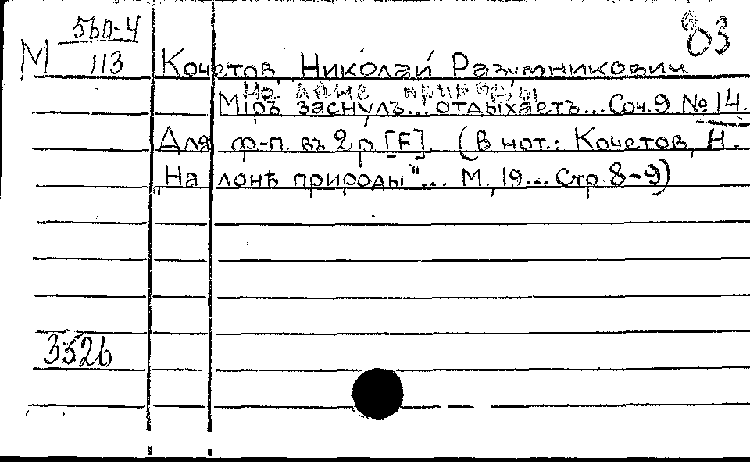 560-4
83
М 113 Кочетов, Николай Разумникович
На лоне природы
Мiръ заснулъ... отдыхаетъ... Соч. 9 № 14.
Для ф-п. въ 2 р. [F]. (В нот.: Кочетов, Н.
„На лонѣ природы"... М., 19... Стр. 8-9)
3526